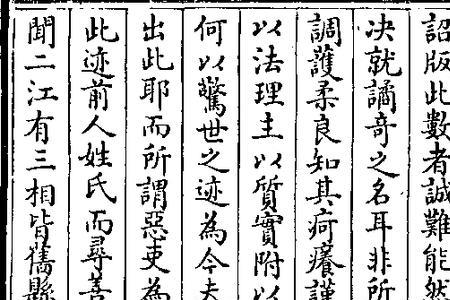 詔版此數者誠難能然
决就譎竒之名耳非所
調䕶柔良知其疴癢謹
以法理主以質實附以
何以驚世之迹為今夫
出此耶而所謂惡吏為
此迹前人姓氏而尋善
聞二江有三相皆舊縣